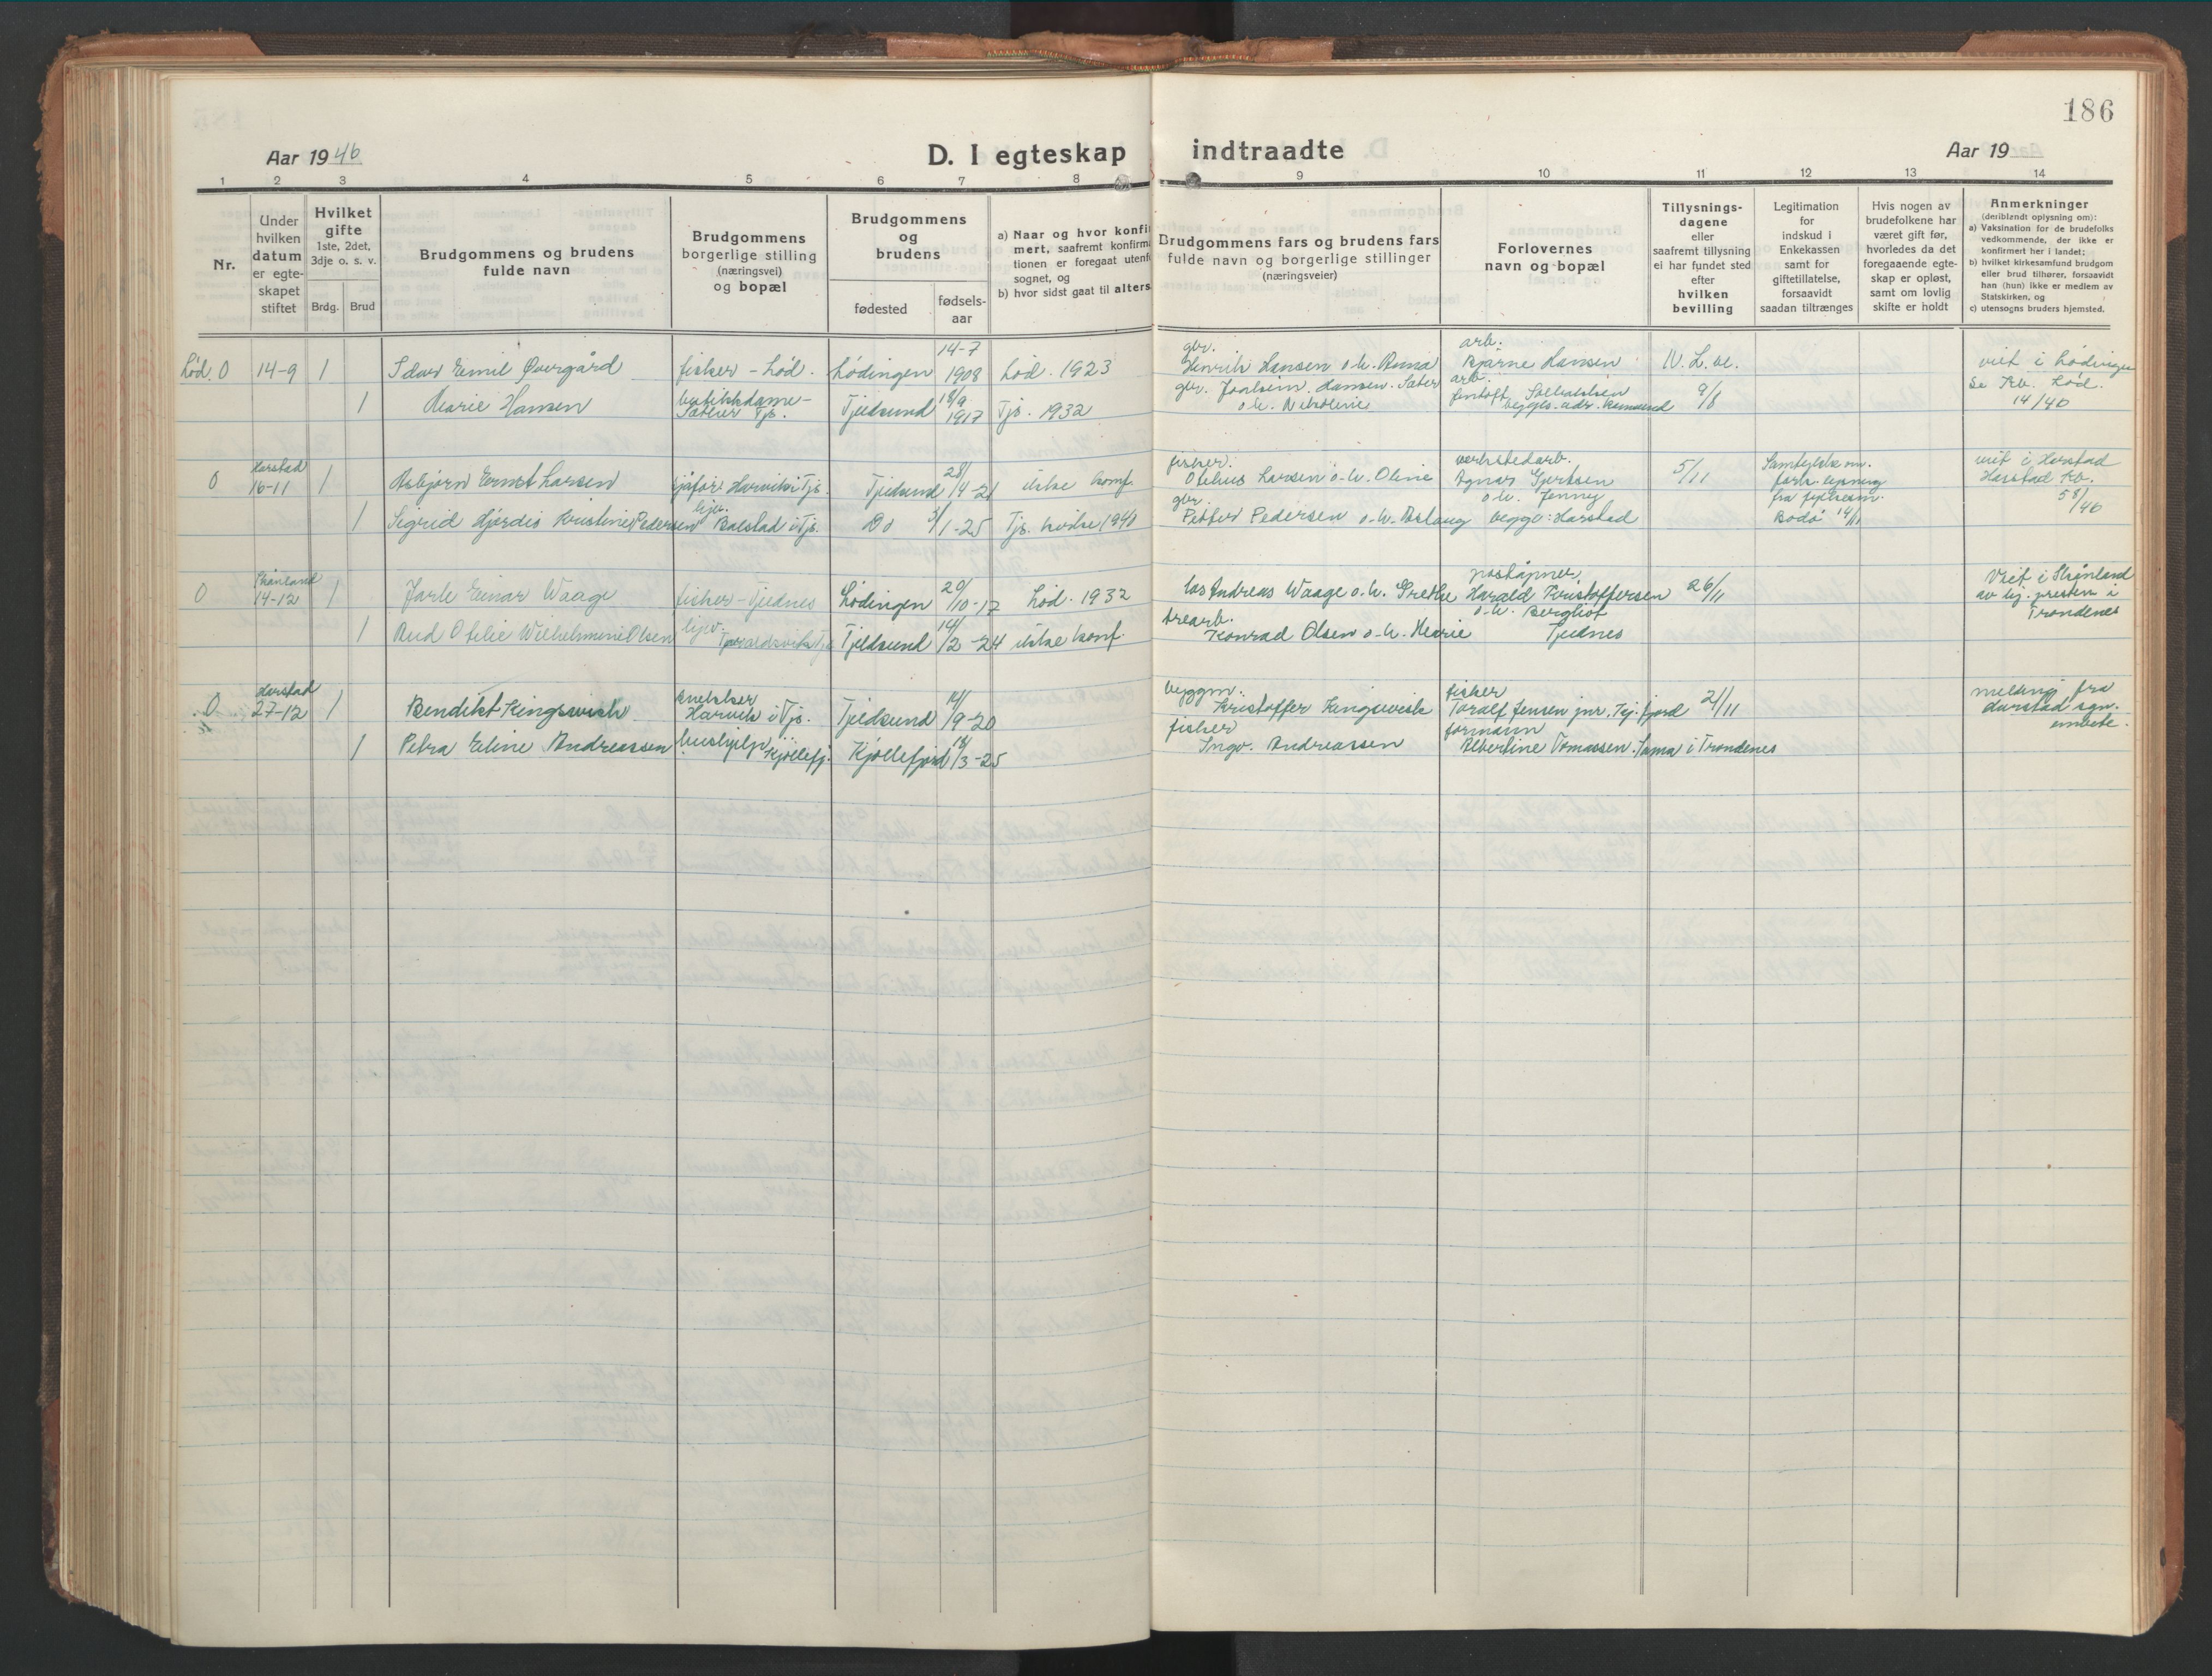 186
Aar 1946
D. I egteskap indtraadte
Aar 19
1 2 3 4 5 6 7 8 9 10 11 12 13 14
Nr.
Under
hvilken
datum
er egte-
skapet
stiftet
Hvilket
gifte
1ste, 2det,
3dje o. s. v.
Brdg. Brud
Brudgommens og brudens
fulde navn
Brudgommens
borgerlige stilling
(næringsvei)
og bopæl
Brudgommens
og
brudens
fødested
fødsels-
aar
a) Naar og hvor konfi
mert, saafremt konfirma
tionen er foregaat utenf
sognet, og
b) hvor sidst gaat til alters
Brudgommens fars og brudens fars
fulde navn og borgerlige stillinger
(næringsveier)
Forlovernes
navn og bopæl
Tillysnings-
dagene
eller
saafremt tillysning
ei har fundet sted
efter
hvilken
bevilling
Legitimation
for
indskud i
Enkekassen
samt for
giftetillatelse,
forsaavidt
saadan tiltrænges
Hvis nogen av
brudefolkene har
været gift før,
hvorledes da det
foregaaende egte-
skap er opløst,
samt om lovlig
skifte er holdt
Anmerkninger
(deriblandt oplysning om):
a) Vaksination for de brudefolks
vedkommende, der ikke er
konfirmert her i landet;
b) hvilket kirkesamfund brudgom
eller brud tilhører, forsaavidt
han (hun) ikke er medlem av
Statskirken, og
c) utensogns bruders hjemsted.
Lød. 0 14-9 1 Idar Emil Øvergård fisker - Lød. Lødingen 14-7 1908 Lød. 1923
gbr. Henrik Hansen o.h. Anna
arb. Bjarne Hansen
N. L. ve.
viet i Lødingen
se Kb. Lød.
14/40
1 Marie Hansen butikkdame - Tjs. Tjeldsund 18/9 1917 Tjs. 1932
gbr. Hansen. Sæter
o.h. Nikoline
arb.
begges adr. Ramsund
9/8
0 Harstad 16-11 1 Asbjørn Ernst Larsen sjåfør Harvik i Tjs. Tjeldsund 28/4-21 ikke konf.
fisker. Otelius Larsen o.h. Oline
verkstedarb.
Agnar Gjertsen
o.h. Jenney
begge: Harstad
5/11
fra fylkesm.
Bodø 14/11
viet i Harstad
Harstad kb.
58/46
1 Sigrid Hjørdis Kristine Pedersen hjv. Balstad i Tjs. Do 3/1-25 Tjs. kirke 1940
gbr. Petter Pedersen o.h. Aslaug
0 Skånland 14-12 1 Jarle Einar Waage fisker - Tjeldnes Lødingen 20/10-17 Lød. 1932
los Andreas Waage o.h. Grethe
poståpner
Harald Kristoffersen
o.h. Bergliot
Tjeldnes
26/11
Viet i Skånland
av hj. presten i
Trondenes
1 Aud Otelie Wilhelmine Olsen hjv. Tjeldsund 14/2-24 ikke konf.
trearb. Konrad Olsen o.h. Marie
0 Harstad 27-12 1 Bendikt Kingsvick snekker Harvik i Tjs. Tjeldsund 14/9-20
byggm. Kristoffer Kingsvick
fisker Toralf Jensen jnr. Kj.fjord
21/11
melding fra
Harstad sgn.
embete.
1 Petra Eline Andreassen hushjelp Kjøllefj. Kjøllefjord 18/3-25
fisker Ingv. Andreassen
formann Albertine Tomassen. Sama i Trondenes